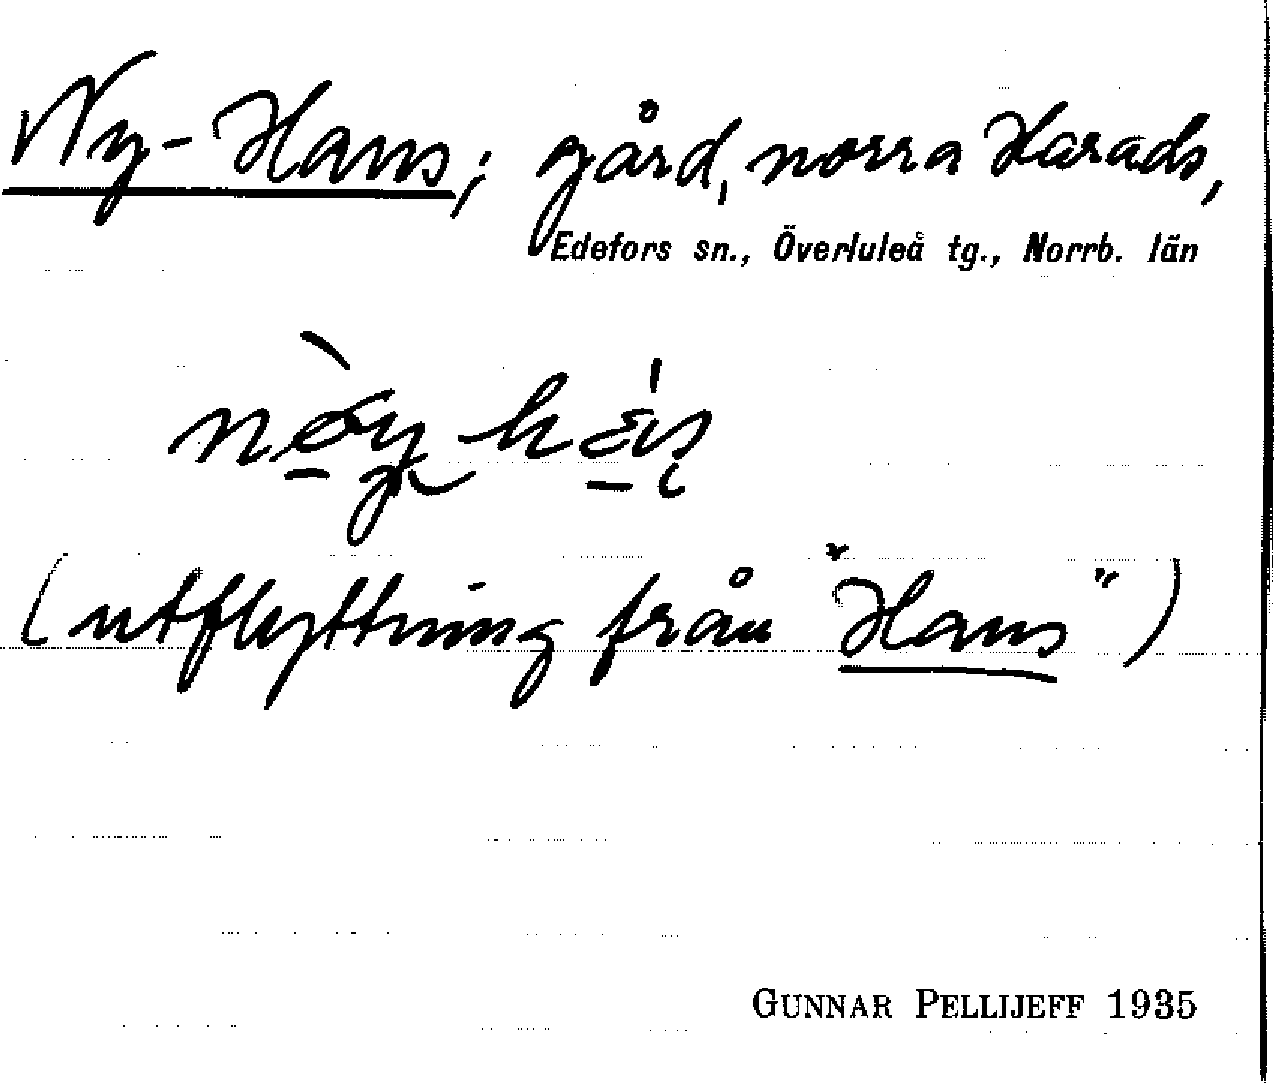 Ny-Hans; gård, norra Harads,
Edefors sn., Överluleå tg., Norrb. län
(utflyttning från "Hans")
GUNNAR PELLIJEFF 1935